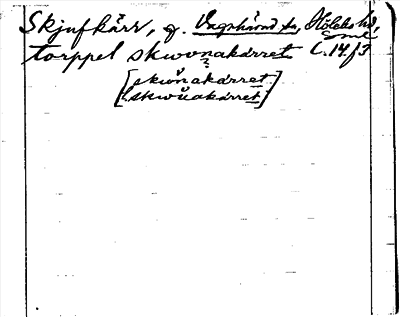 Skjufkärr, g. Vagnhärad sn, Hölebo hd,
torppel skwonakárret C.14.f3
[skwönakárret]
[skwũakárret]